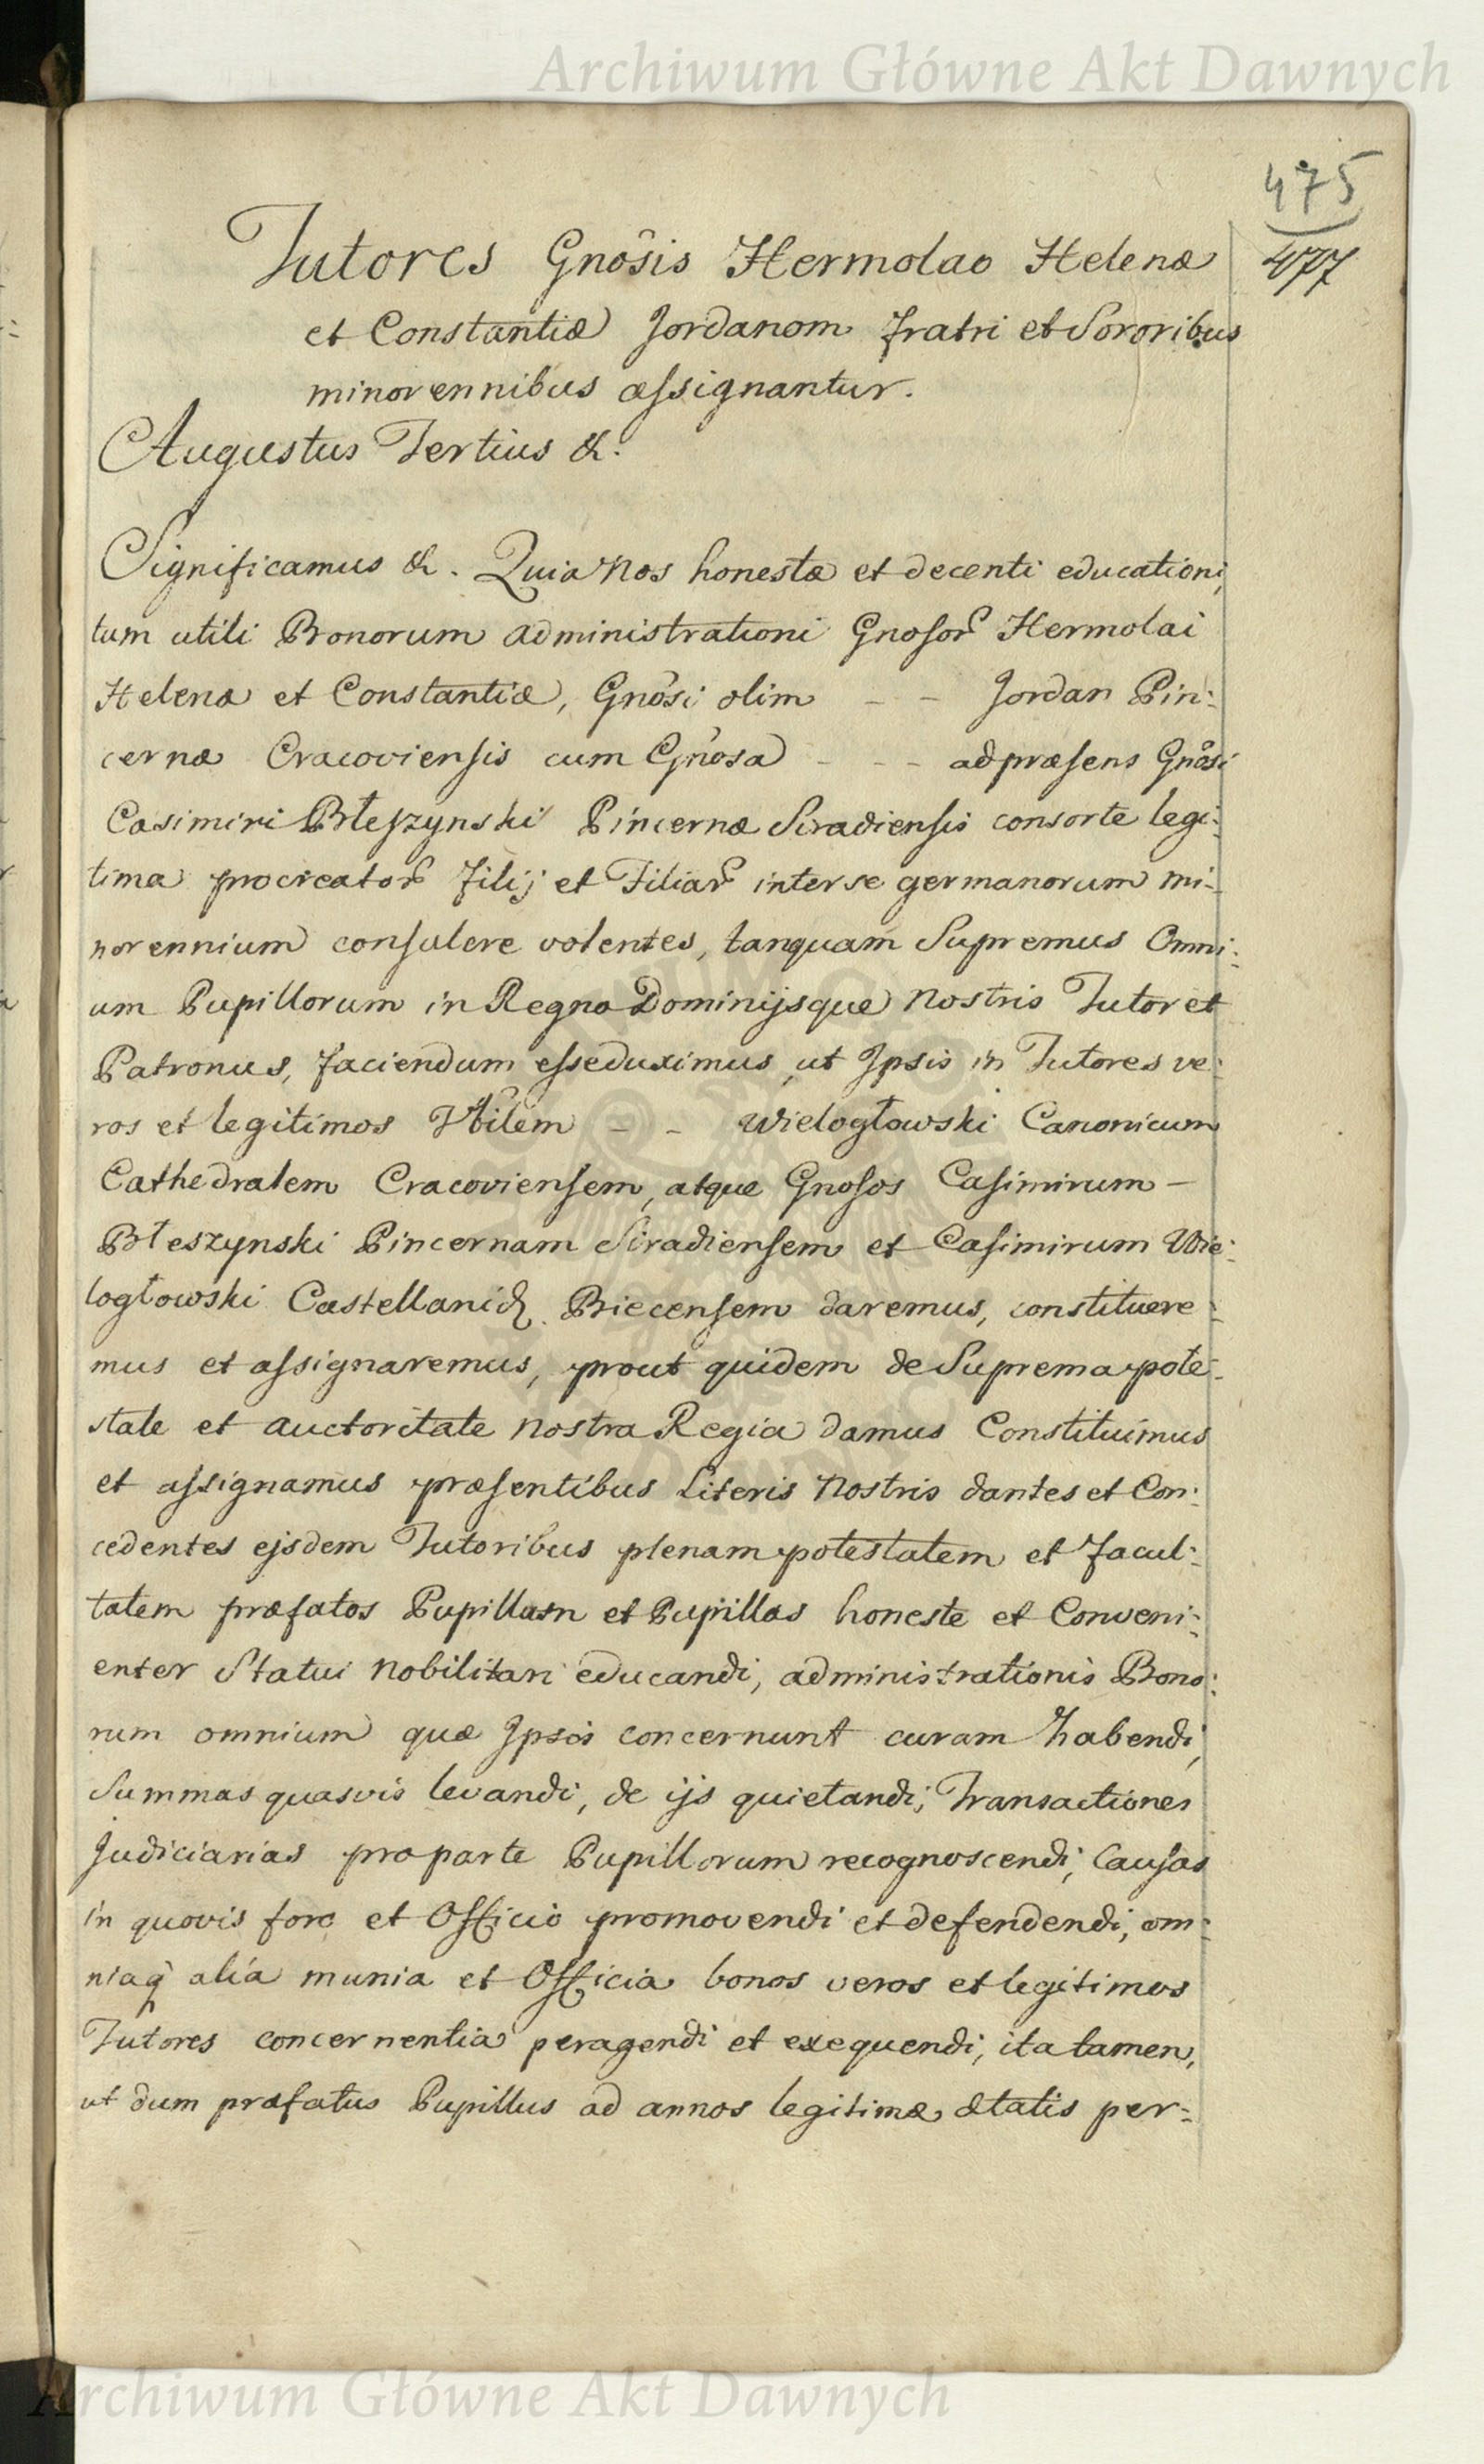 Archiwum Główne Akt Dawnych
475
477
Tutores Gnôsis Hermolao Helenæ
et Constantiæ Jordanom fratri et Sororibus
minorennibus assignantur.
Augustus Tertius &.
Significamus &. Quia Nos honestæ et decenti educationi,
tum utili Bonorum administrationi Gnosor Hermolai
Helenæ et Constantiæ, Gnôsi olim – – Jordan Pin:
cernæ Cracoviensis cum Gnôsa – – – ad præsens Gnôsi
Casimiri Błeszynski Pincernæ Siradiensis consorte legi:
tima procreator Filij et Filiar inter se germanorum mi:
norennium consulere volentes, tanquam Supremus Omni:
um Pupillorum in Regno Dominijsque nostris Tutor et
Patronus, faciendum esse duximus, ut Ipsis in Tutores ve:
ros et legitimos Vbilem – – Wielogłowski Canonicum
Cathedralem Cracoviensem, atque Gnosos Casimirum –
Błeszynski Pincernam Siradiensem et Casimirum Wie:
logłowski Castellanid. Biecensem daremus, constituere:
mus et assignaremus, prout quidem de Suprema pote:
state et auctoritate nostra Regia damus Constituimus
et assignamus præsentibus Literis Nostris dantes et Con:
cedentes ejsdem Tutoribus plenam potestatem et facul:
tatem præfatos Pupillum et Pupillas honeste et Conveni:
enter Statui nobilitari educandi, administrationis Bono:
rum omnium quæ Ipsos concernunt curam habendi,
Summas quasvis levandi, de ijs quietandi, Transactiones
Judiciarias pro parte Pupillorum recognoscendi, Causas
in quovis foro et Officio promovendi et defendendi, om:
niaq alia munia et Officia bonos veros et legitimos
Tutores concernentia peragendi et exequendi, ita tamen,
ut dum præfatus Pupillus ad annos legitimæ ætatis per:
Archiwum Główne Akt Dawnych